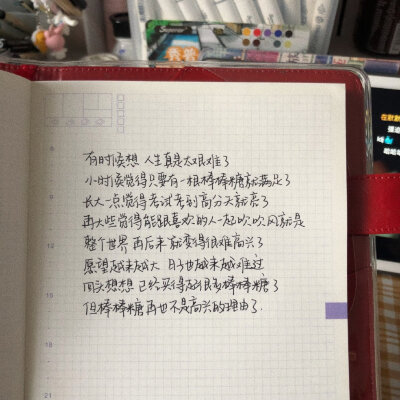 有时候想 人生真是太艰难了
小时候觉得只要有一根棒棒糖就满足了
长大一点觉得考试考到高分天就亮了
再大些觉得能跟喜欢的人一起吹吹风就是
整个世界 再后来就变得很难高兴了
愿望越来越大 日子也越来越难过
回头想想 已经买得起很多棒棒糖了
但棒棒糖再也不是高兴的理由了.
9
12
15
18
21